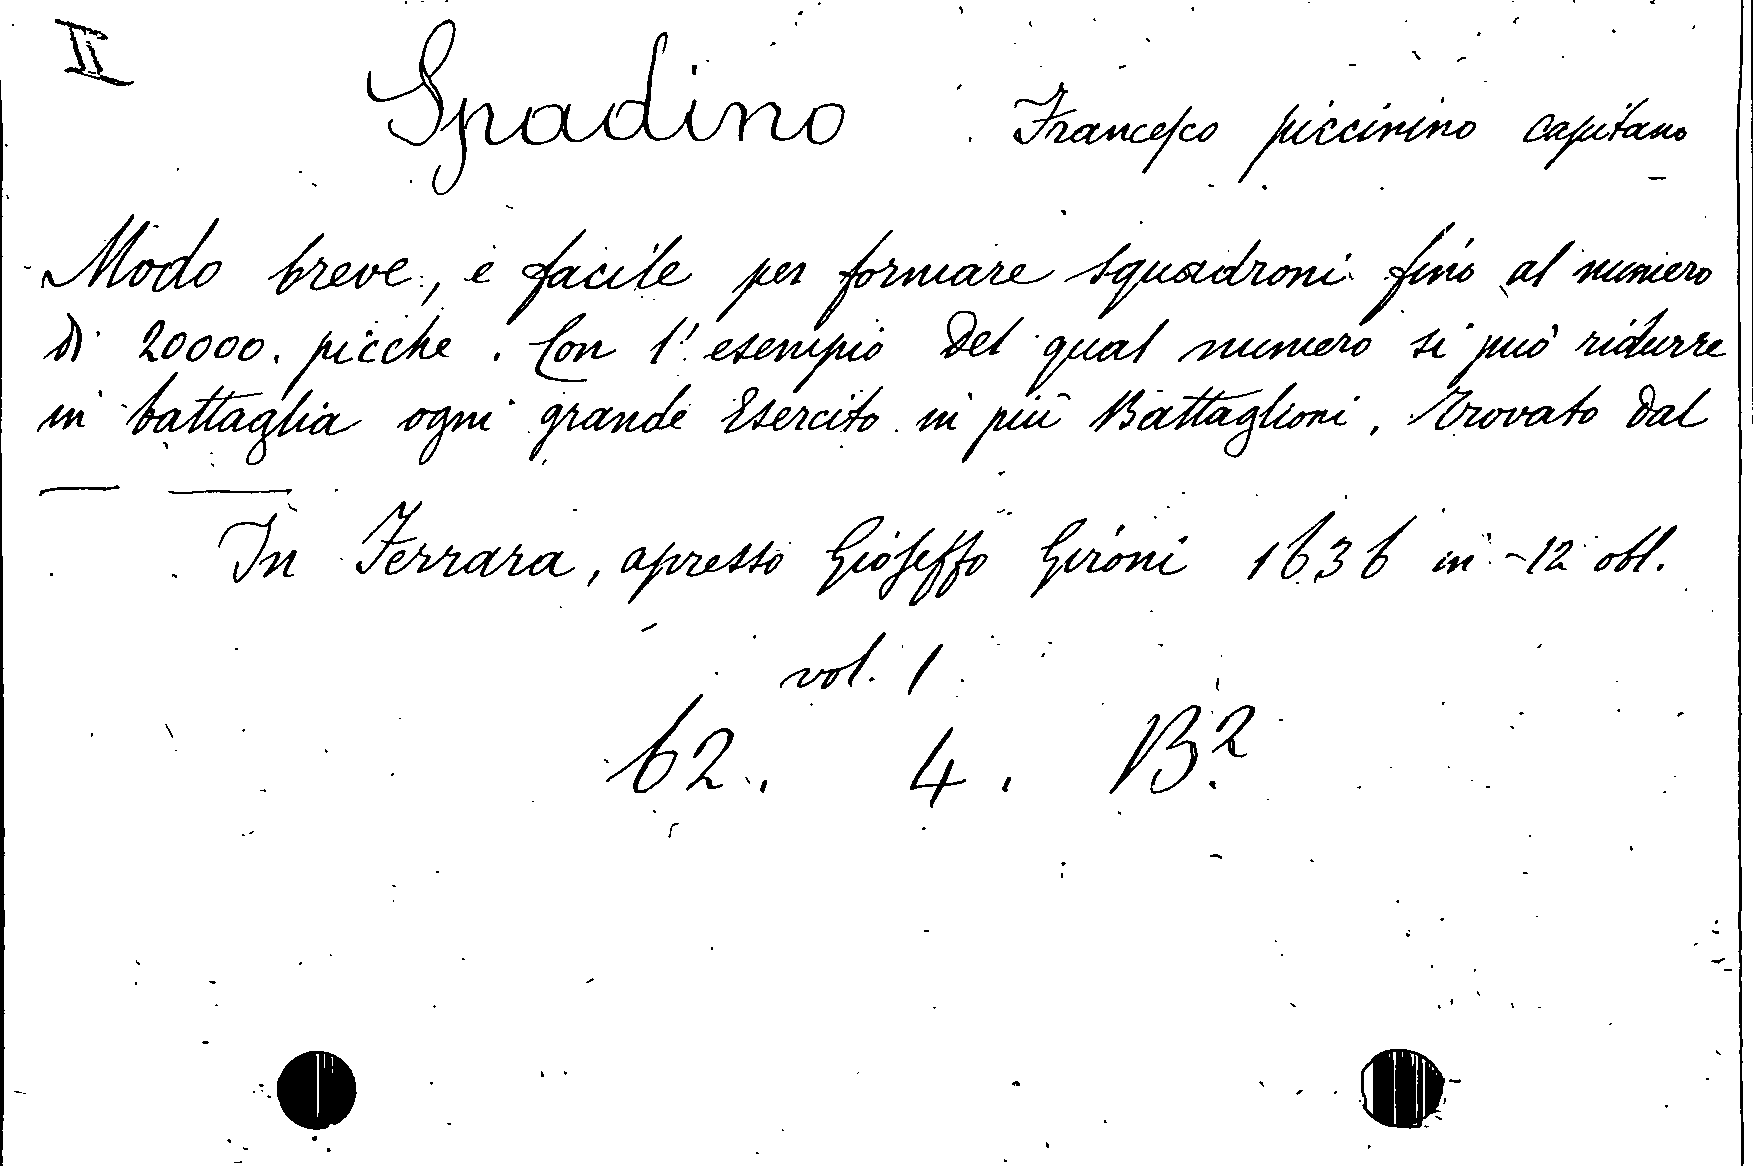 II
Spadino Francesco piccinino capitano
Modo breve, e facile per formare squadroni fino al numero
di 20000. picche. Con l'esempio del qual numero si può ridurre
in battaglia ogni grande Esercito in più Battaglioni. Trovato dal
— —
In Ferrara, apresso Gioseffo Gironi 1636 in-12 obl.
vol. 1
62. 4. B².